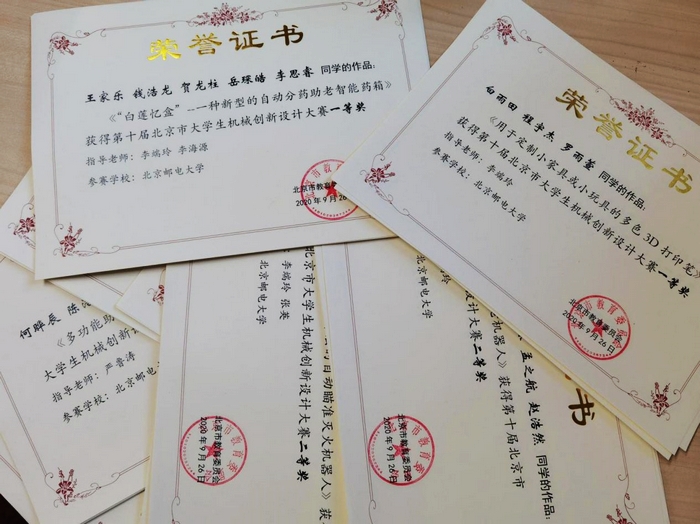 荣誉证书
王家乐 钱浩龙 贺龙柱 岳琛皓 李思睿 同学的作品:
《“白莲忆盒”--一种新型的自动分药助老智能药箱》
获得第十届北京市大学生机械创新设计大赛一等奖
指导老师: 李端玲 李海源
参赛学校: 北京邮电大学
北京市教育
2020年9月26
荣誉证书
白雨田 程宇杰 同学的作品:
《用于定制小家具或小玩具的多色3D打印笔
获得第十届北京市大学生机械创新设计大赛一等奖
指导老师: 李端玲
参赛学校: 北京邮电大学
北京市教育委员会
2020年9月26日
何晔辰 陈
《多功能助
大学生机械创
指导老师: 严晋涛
参赛学校: 北京邮电
北京市大学生机械创新设计大赛二等奖
李端玲 张英
北京邮电大学
北京市教育委员会
2020年9月26日
自动瞄准灭火机器人》获
设计大赛二等奖
北京邮电大学
机器人》获得第十届北京市
孟之航 赵浩然 同学的作品:
书
北京市教育委员会
2020年9月26日